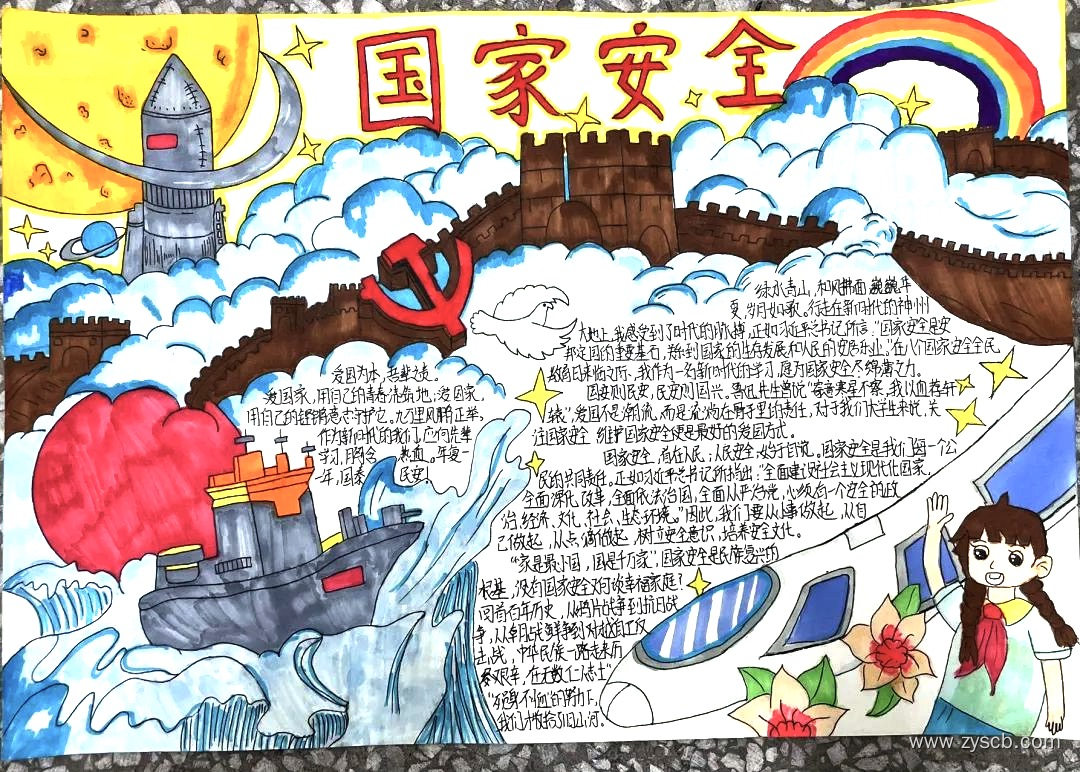 国家安全
爱国为本,吾辈之责。
爱国家,用自己的青春浇筑她;爱国家,
用自己的铿锵意志守护它。九万里风鹏正举,
作为新时代的我们,应向先辈
学习,用冷 热血。年复一
年,国泰 民安!
绿水青山,和风拂面,巍巍华
夏,岁月如歌。行走在新时代的神州
大地上,我感受到了时代的脉搏,正如习近平总书记所言,"国家安全是安
邦定国的重要基石,关系到国家的生存发展和人民的安居乐业。"在八个国家安全全民
教育日来临之际,我作为一名新时代的学习,愿为国家安全尽绵薄之力。
国安则民安,民安则国兴。鲁迅先生曾说"寄意寒星不察,我以血荐轩
辕",爱国不是潮流,而是 的责任,对于我们大学生来说,关
注国家安全,维护国家安全便是最好的爱国方式。
国家安全,局在人民;人民安全,始于自觉。国家安全是我们每一个公
民的共同责任。正如习近平总书记所指出,"全面建设社会主义现代化国家,
全面深化改革,全面依法治国,全面从严治党,必须有一个安全的政
治、经济、文化、社会、生态环境。"因此,我们要从小事做起,从自
己做起,从点滴做起,树立安全意识,培养安全文化。
"家是最小国,国是千万家",国家安全是民族复兴的
根基,没有国家安全又何谈幸福家庭?
回首百年历史,从鸦片战争到抗日战
争,从朝战 到对越自卫反
击战,中华民族一路走来历
参艰辛,在无数仁人志士
"殒身不恤"的努力下,
我们才收拾了旧山河。
www.zyscb.com